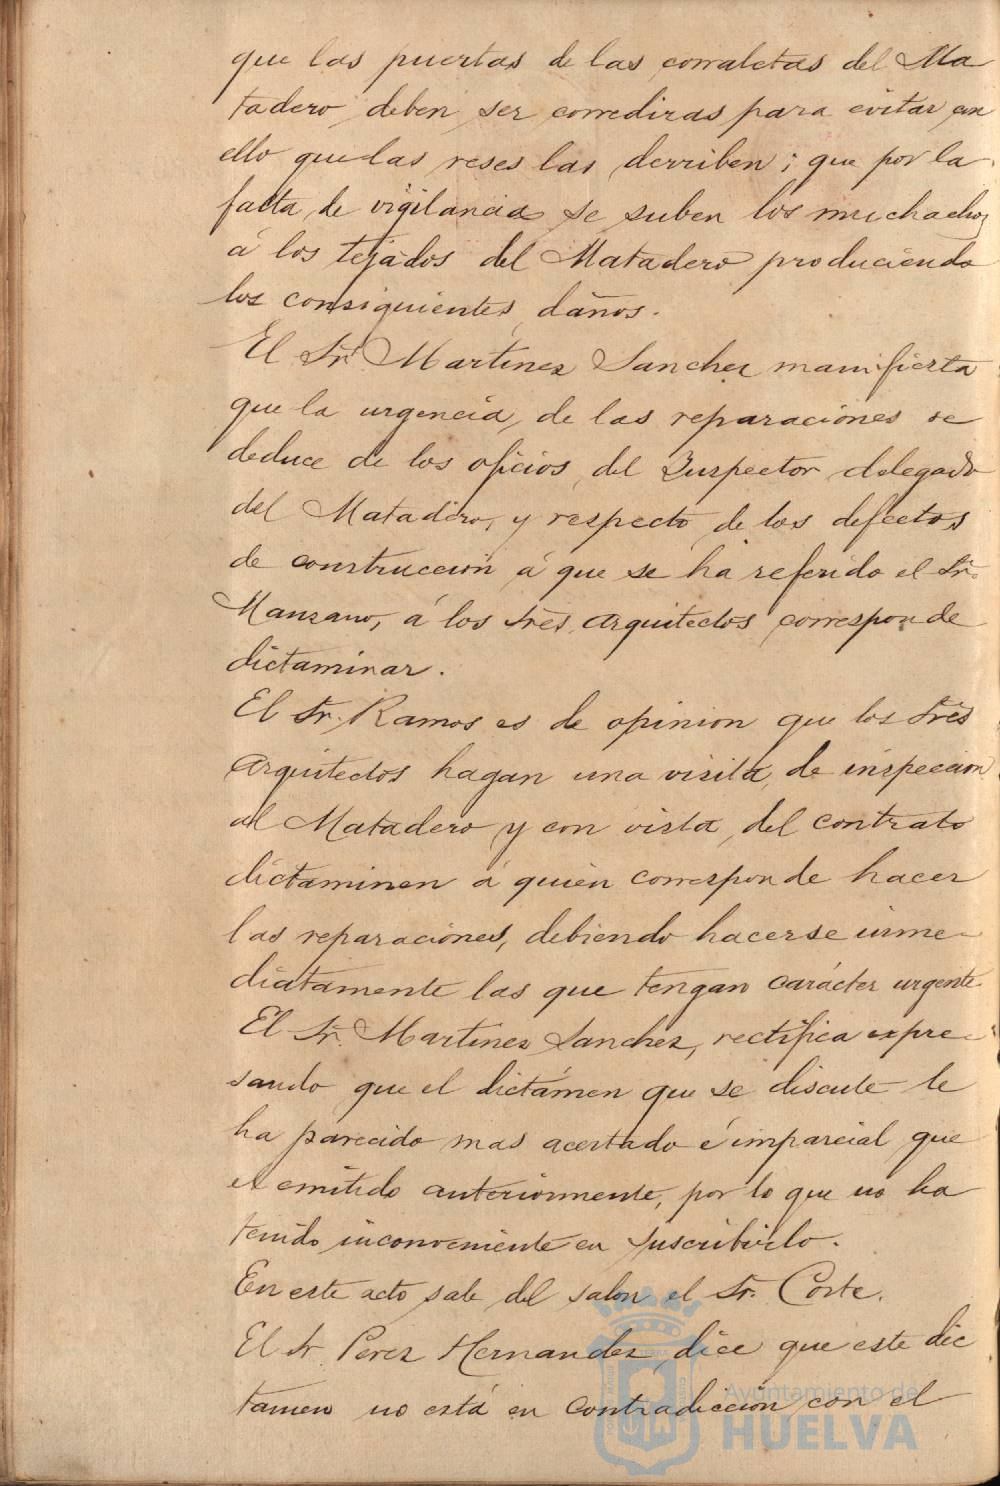 que las puertas de las corraletas del Ma
tadero, deben ser corredizas para evitar con
ello que las reses las derriben; que por la
falta de vigilancia se suben los muchachos
á los tejados del Matadero produciendo
los consiguientes daños.
El Sr. Martinez Sanchez manifiesta
que la urgencia, de las reparaciones se
deduce de los oficios del Inspector delegado
del Matadero, y respecto de los defectos
de construccion á que se ha referido el Sr.
Manzano, á los tres arquitectos corresponde
dictaminar.
El Sr. Ramos es de opinion que los tres
arquitectos hagan una visita de inspeccion
al Matadero y con vista del contrato
dictaminen á quien corresponde hacer
las reparaciones, debiendo hacerse inme-
diatamente las que tengan carácter urgente
El Sr. Martinez Sanchez, rectifica expre-
sando que el dictámen que se discute le
ha parecido mas acertado é imparcial que
el emitido anteriormente, por lo que no ha
tenido inconveniente en suscribirlo.
En este acto sale del salon el Sr. Corte.
El Sr Perez Hernandez dice que este dic
tamen no está en contradicción con el
Ayuntamiento de
HUELVA